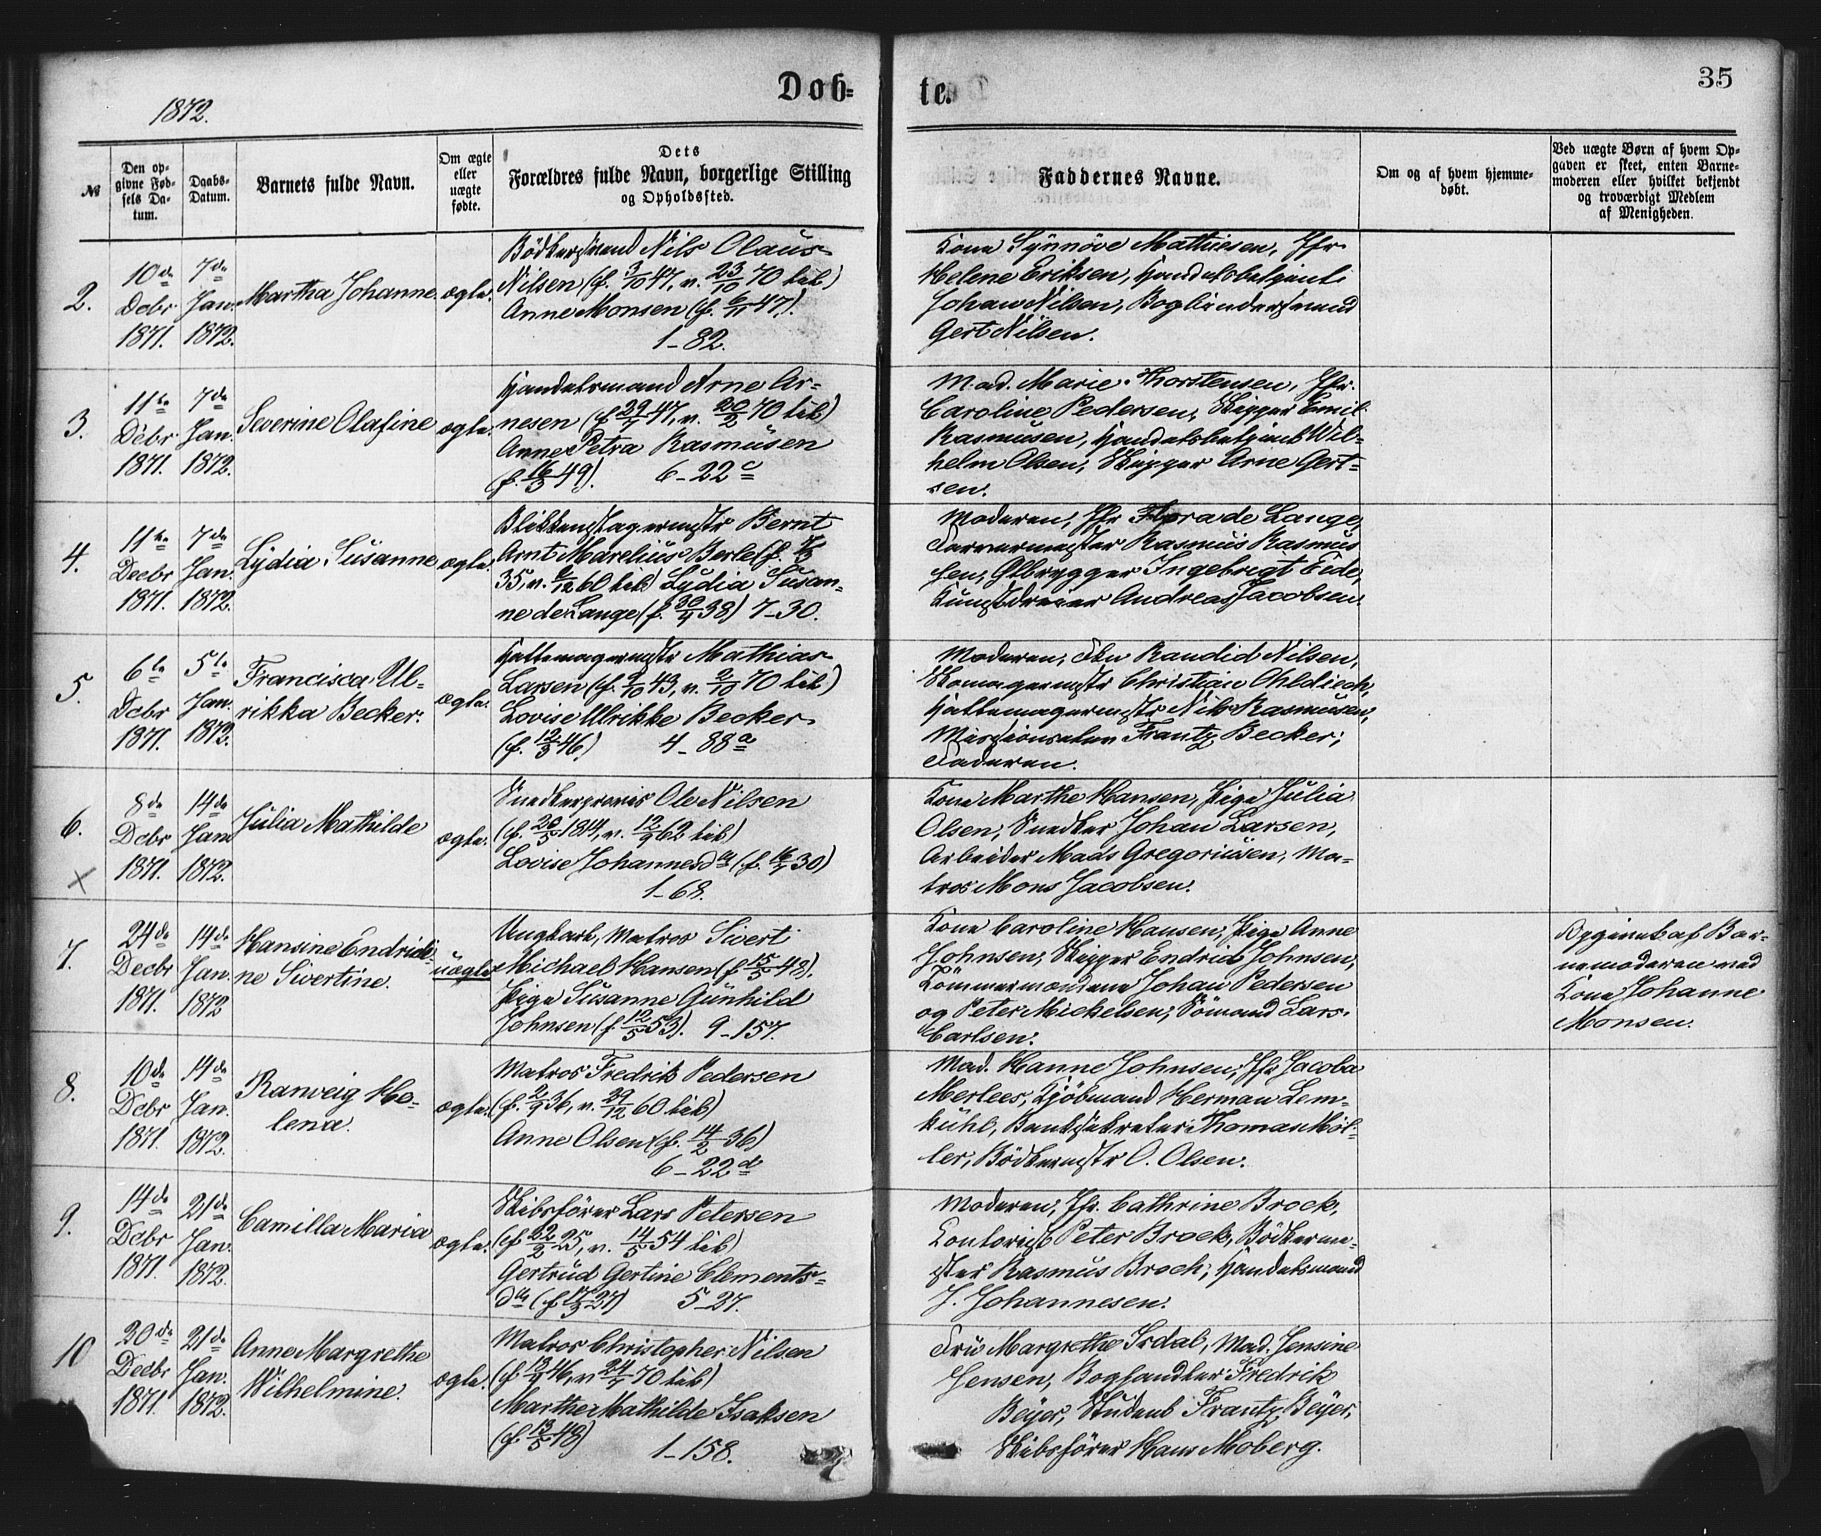 1872.
Døb=
te.
35
№
Den op-
givne Fød-
sels Da-
tum.
Daabs-
Datum.
Barnets fulde Navn.
Om ægte
eller
uægte
fødte.
Dets
Forældres fulde Navn, borgerlige Stilling
og Opholdssted.
Faddernes Navne.
Om og af hvem hjemme-
døbt.
Ved uægte Børn af hvem Op-
gaven er skeet, enten Barne-
moderen eller hvilket bekjendt
og troværdigt Medlem
af Menigheden.
2.
10de
Dcbr
1871.
7de
Jan.
1872.
Martha Johanne.
ægte.
Bödkersvend Nils Olaus
Nilsen (f. 3/10 47, v. 23/10 70 lib)
Anne Monsen (f. 6/11 47).
1-82.
Kone Synnöve Mathiesen, Jfr
Helene Eriksen, Handelsbetjent
Johan Nilsen, Bogbindersvend
Gert Nilsen.
3.
11te
Debr
1871.
7de
Jan.
1872.
Severine Olafine
ægte.
Handelsmand Arne Ar-
nesen (f. 29/7 47, v. 20/2 70 lib)
Anne Petra Rasmüsen
(f. 16/3 49). 6-22c
Mad. Marie Thorstensen, Jfr.
Caroline Pedersen, Skipper Emil
Rasmusen, Handelsbetjent Wil-
helm Olsen, Skipper Arne Gert-
sen.
4.
11te
Decbr
1871.
7de
Jan.
1872.
Lydia Süsanne
ægte.
Blikkenslagermstr Bernt
Arnt Marelius Berle (f.
35, v. 60 lib) Lydia Susan-
ne de Lange (f. 30/9 38) 7-30.
Moderen, Jfr Flora de Lange,
Farvermester Rasmus Rasmus
sen, Ølbrygger Ingebrigt Eide,
Kunstdreier Andreas Jacobsen.
5.
6te
Dcbr
1871.
5te
Jan.
1872.
Francisca Ul-
rikka Becker.
ægte.
Hattemagermstr Mathias
Larsen (f. 9/10 43, v. 2/10 70 lib)
Lovise Ulrikke Becker
(f. 12/3 46) 4-88a
Moderen, Randid Nilsen,
Skomagermstr Christian Ohldieck,
Hattemagermstr Nils Rasmusen,
Missionselev Frantz Becker,
Faderen.
6.
X
8de
Dcbr
1871.
14de
Jan
1872.
Julia Mathilde
ægte.
Snedkergreris Ole Nilsen
(f. 20/5 1814, v. 12/9 62 lib)
Lovise Johannesda (f. 16/7 30)
1-68.
Kone Marthe Hansen, Pige Julia
Olsen, Snedker Johan Larsen,
Arbeider Mads Gregoriüsen, Ma-
tros Mons Jacobsen.
7.
24de
Decbr
1871.
14de
Jan.
1872
Hansine Endrick-
ne Sivertine.
üægte
Ungkarl, Matros Sivert
Michael Hansen (f. 15/5 48).
Pige Süsanne Günhild
Johnsen (f 12/5 53). 9-157.
Kone Caroline Hansen, Pige Anne
Johnsen, Skipper Endrick Johnsen,
Tömmermændene Johan Pedersen
og Peter Mickelsen, Sömand Lars
Carlsen.
Opgivet af Bar-
nemoderen ved
Kone Johanne
Monsen.
8.
10de
Dcbr
1871.
14de
Jan.
1872.
Ranveig He-
lena.
ægte.
Matros Fredrik Pedersen
(f. 2/9 36, v. 29/12 60 lib)
Anne Olsen (f. 14/2 36)
6-22d
Mad. Hanne Johnsen, Jfr Jacoba
Merlees, Kjöbmand Herman Lem-
kühl, Banksekretær Thomas Möl-
ler, Bödkermstr O. Olsen.
9.
14de
Dcbr
1871.
21de
Jan.
1872.
Camilla Maria
ægte.
Skibsförer Lars Petersen
(f 22/2 25, v. 14/5 54 lib)
Gertrüd Gertine Clements-
da (f. 17/3 27) 5-27.
Moderen, Jfr. Cathrine Brock,
Kontorist Peter Brock, Bödkerme-
ster Rasmus Broch, Handelsmand
J. Johannesen.
10
20de
Decbr
1871.
21de
Jan.
1872.
Anne Margrethe
Wilhelmine.
ægte.
Matros Christopher Nilsen
(f. 13/9 46, v 24/7 70 lib)
Marthe Mathilde Isaksen
(f. 13/5 48)
1-158.
Frü Margrethe Irdal, Mad. Jensine
Jensen, Boghandler Fredrik
Beyer, Student Frantz Beyer,
Skibsförer Hans Moberg.